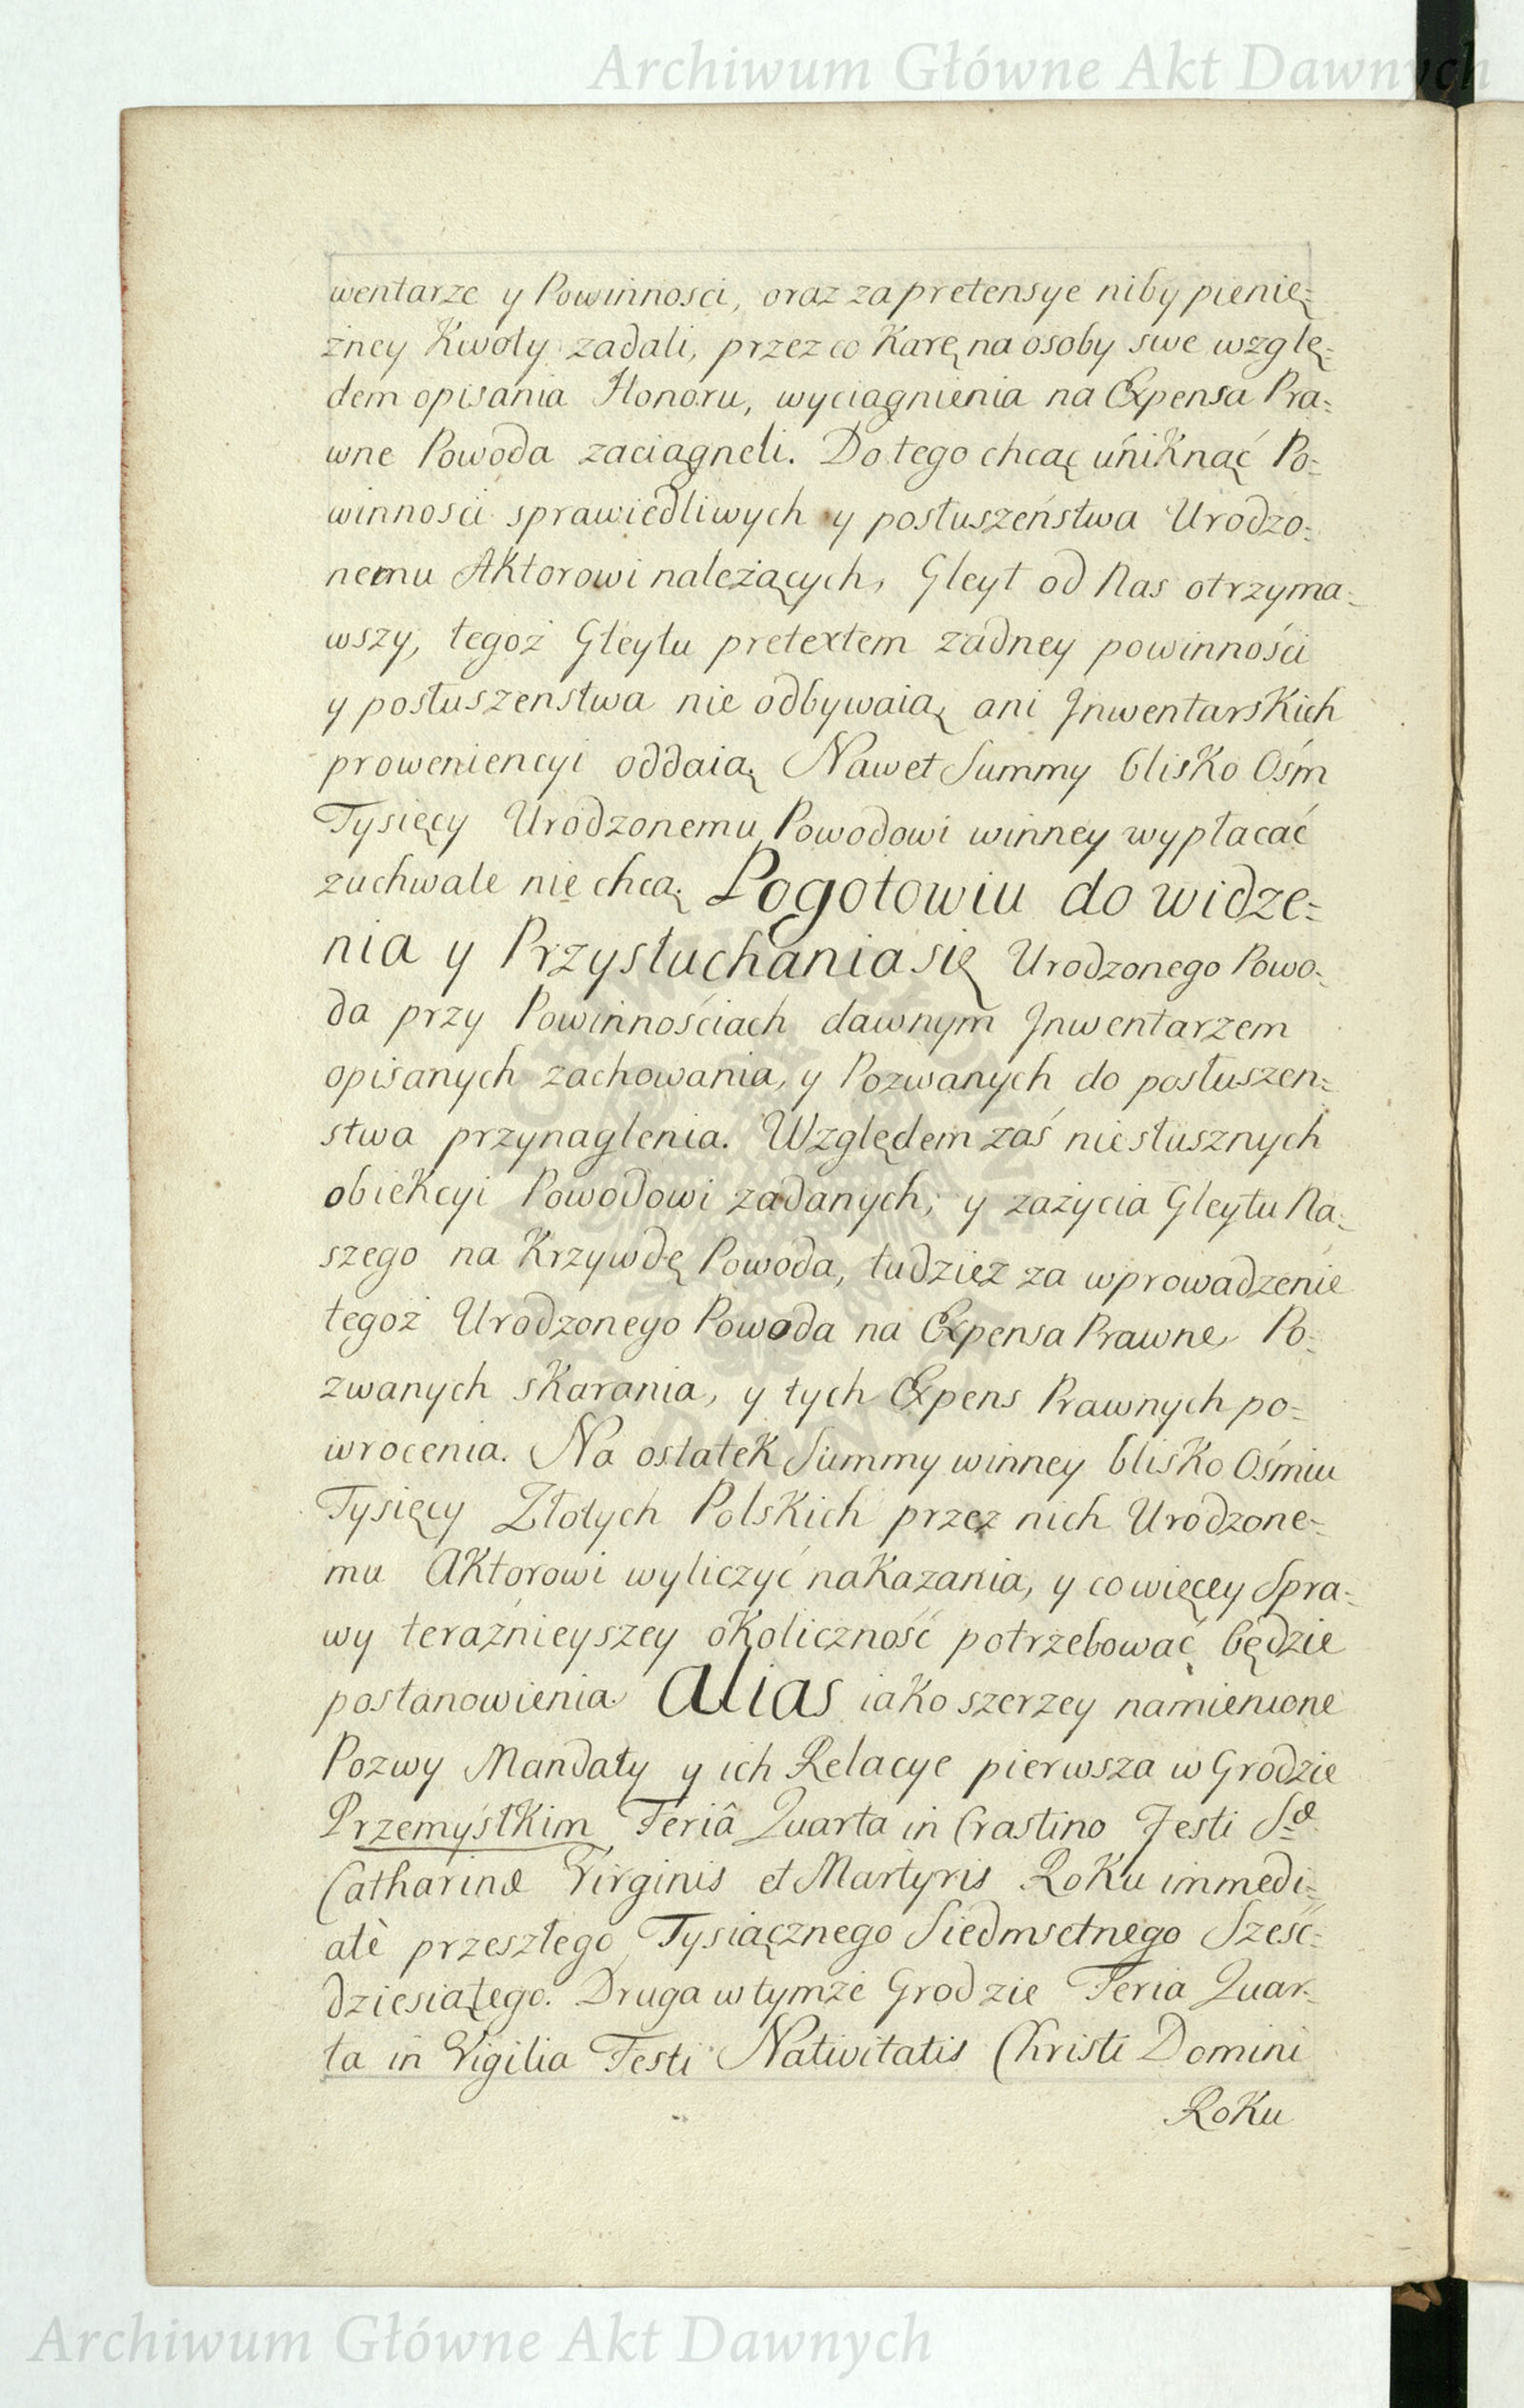 Archiwum Główne Akt Dawnych
wentarze y Powinnosci, oraz za pretensye niby pienię=
żney Kwoty zadali, przez co Karę na osoby swe wzglę=
dem opisania Honoru, wyciągnienia na Expensa Pra=
wne Powoda zaciągneli. Do tego chcąc uniknąć Po=
winnosci sprawiedliwych y posłuszeństwa Urodzo=
nemu Aktorowi należących, Gleyt od Nas otrzyma=
wszy, tegoż Gleytu pretextem żadney powinności
y posłuszenstwa nie odbywaią, ani Jnwentarskich
proweniencyi oddaią, Nawet Summy blisko Ośm
Tysięcy Urodzonemu Powodowi winney wypłacać
zuchwale nie chcą. Pogotowiu do widze=
nia y Przysłuchania się Urodzonego Powo=
da przy Powinnościach dawnym Jnwentarzem
opisanych zachowania, y Pozwanych do posłuszen=
stwa przynaglenia. Względem zaś niesłusznych
obiekcyi Powodowi zadanych, y zażycia Gleytu Na=
szego na Krzywdę Powoda, tudzież za wprowadzenie
tegoż Urodzonego Powoda na Expensa Prawne, Po=
zwanych skarania, y tych Expens Prawnych po=
wrocenia. Na ostatek Summy winney blisko Ośmiu
Tysięcy Złotych Polskich przez nich Urodzone=
mu Aktorowi wyliczyć nakazania, y co więcey Spra=
wy teraźnieyszey okoliczność potrzebować będzie
postanowienia. Alias iako szerzey namienione
Pozwy Mandaty y ich Relacye pierwsza w Grodzie
Przemyślkim Feriâ Quarta in Crastino Festi Sæ
Catharinæ Virginis et Martyris Roku immedi=
atè przeszłego Tysiącznego Siedmsetnego Sześć=
dziesiątego. Druga w tymże Grodzie Feria Quar=
ta in Vigilia Festi Nativitatis Christi Domini
Roku
Archiwum Główne Akt Dawnych